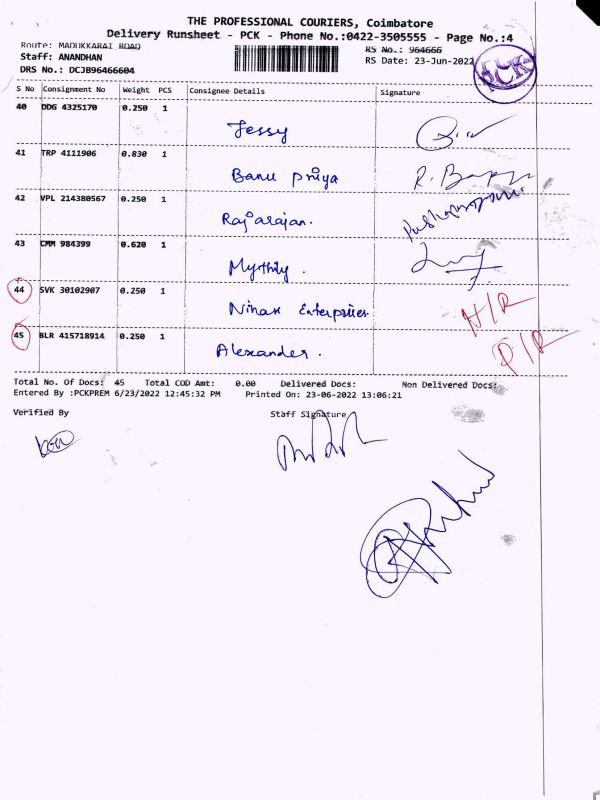 THE PROFESSIONAL COURIERS, Coimbatore
Delivery Runsheet - PCK - Phone No.:0422-3505555 - Page No.:4
Route: MADUKKARAI ROAD RS No.: 964666
Staff: ANANDHAN RS Date: 23-Jun-2022
DRS No.: DCJB96466604
PCK
S No Consignment No Weight PCS Consignee Details Signature
40 DDG 4325170 0.250 1
Jessy
41 TRP 4111906 0.830 1
Banu priya R. B
42 VPL 214380567 0.250 1
Rajarajan.
43 CMM 984399 0.620 1
Mythily.
44 SVK 30102907 0.250 1
Nihas Enterprises N/R
45 BLR 415718914 0.250 1
Alexander. D/R
Total No. Of Docs: 45 Total COD Amt: 0.00 Delivered Docs: Non Delivered Docs:
Entered By :PCKPREM 6/23/2022 12:45:32 PM Printed On: 23-06-2022 13:06:21
Verified By Staff Signature